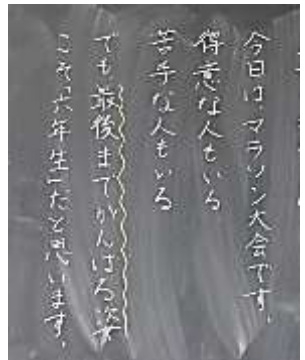 今日は、マラソン大会です。
得意な人もいる
苦手な人もいる
でも最後までがんばる姿
こそ「六年生」だと思います。